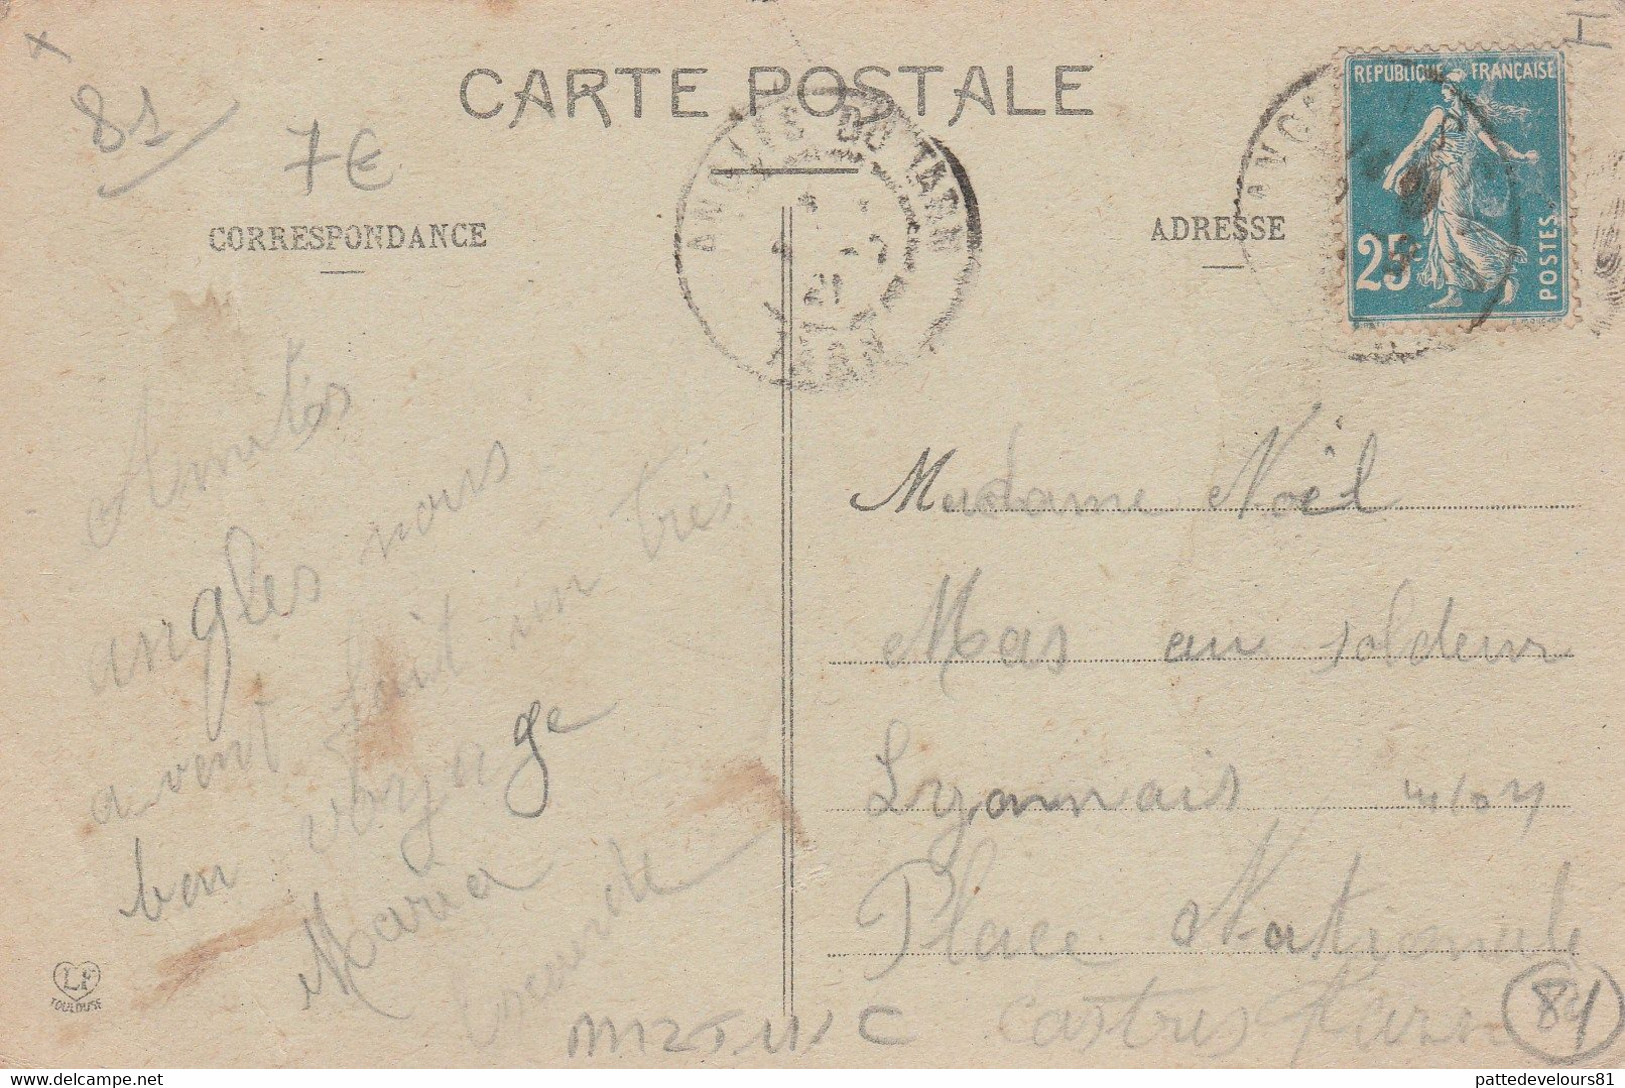 CARTE POSTALE
81
7€
CORRESPONDANCE
ADRESSE
ANGLES DU TARN
21
TARN
REPUBLIQUE FRANÇAISE
25c
POSTES
Amitiés
angles nous
avont fait un très
bon voyage
Maria
Madame Noël
Mas au soldeur
Lyonnais
Place Nationale
Castres Tarn
84
LF
TOULOUSE
delcampe.net
pattedevelours81